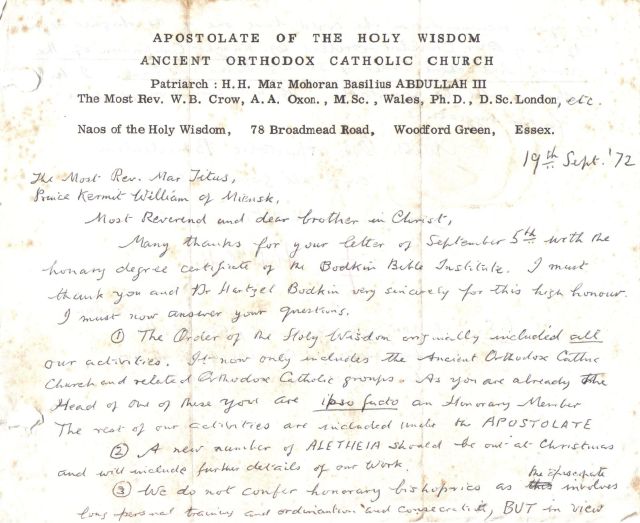 APOSTOLATE OF THE HOLY WISDOM
ANCIENT ORTHODOX CATHOLIC CHURCH
Patriarch : H.H. Mar Mohoran Basilius ABDULLAH III
The Most Rev. W.B. Crow, A.A. Oxon., M.Sc., Wales, Ph.D., D.Sc. London, etc.
Naos of the Holy Wisdom, 78 Broadmead Road, Woodford Green, Essex.
19th Sept. '72
The Most Rev. Mar Titus,
Prince Kermit William of Miensk,
Most Reverend and dear brother in Christ,
Many thanks for your letter of September 5th with the
honary degree certificate of the Bodkin Bible Institute. I must
thank you and Dr Hartzel Bodkin very sincerely for this high honour.
I must now answer your questions.
① The Order of the Holy Wisdom originally included all
our activities. It now only includes the Ancient Orthodox Cathlic
Church and related Orthodox Catholic groups. As you are already the
Head of one of these you are ipso facto an Honorary Member
The rest of our activities are included under the APOSTOLATE
② A new number of ALETHEIA should be out at Christmas
and will include further details of our work.
③ We do not confer honorary bishoprics as the episcopate involves
long personal training and ordination and consecration, BUT in view